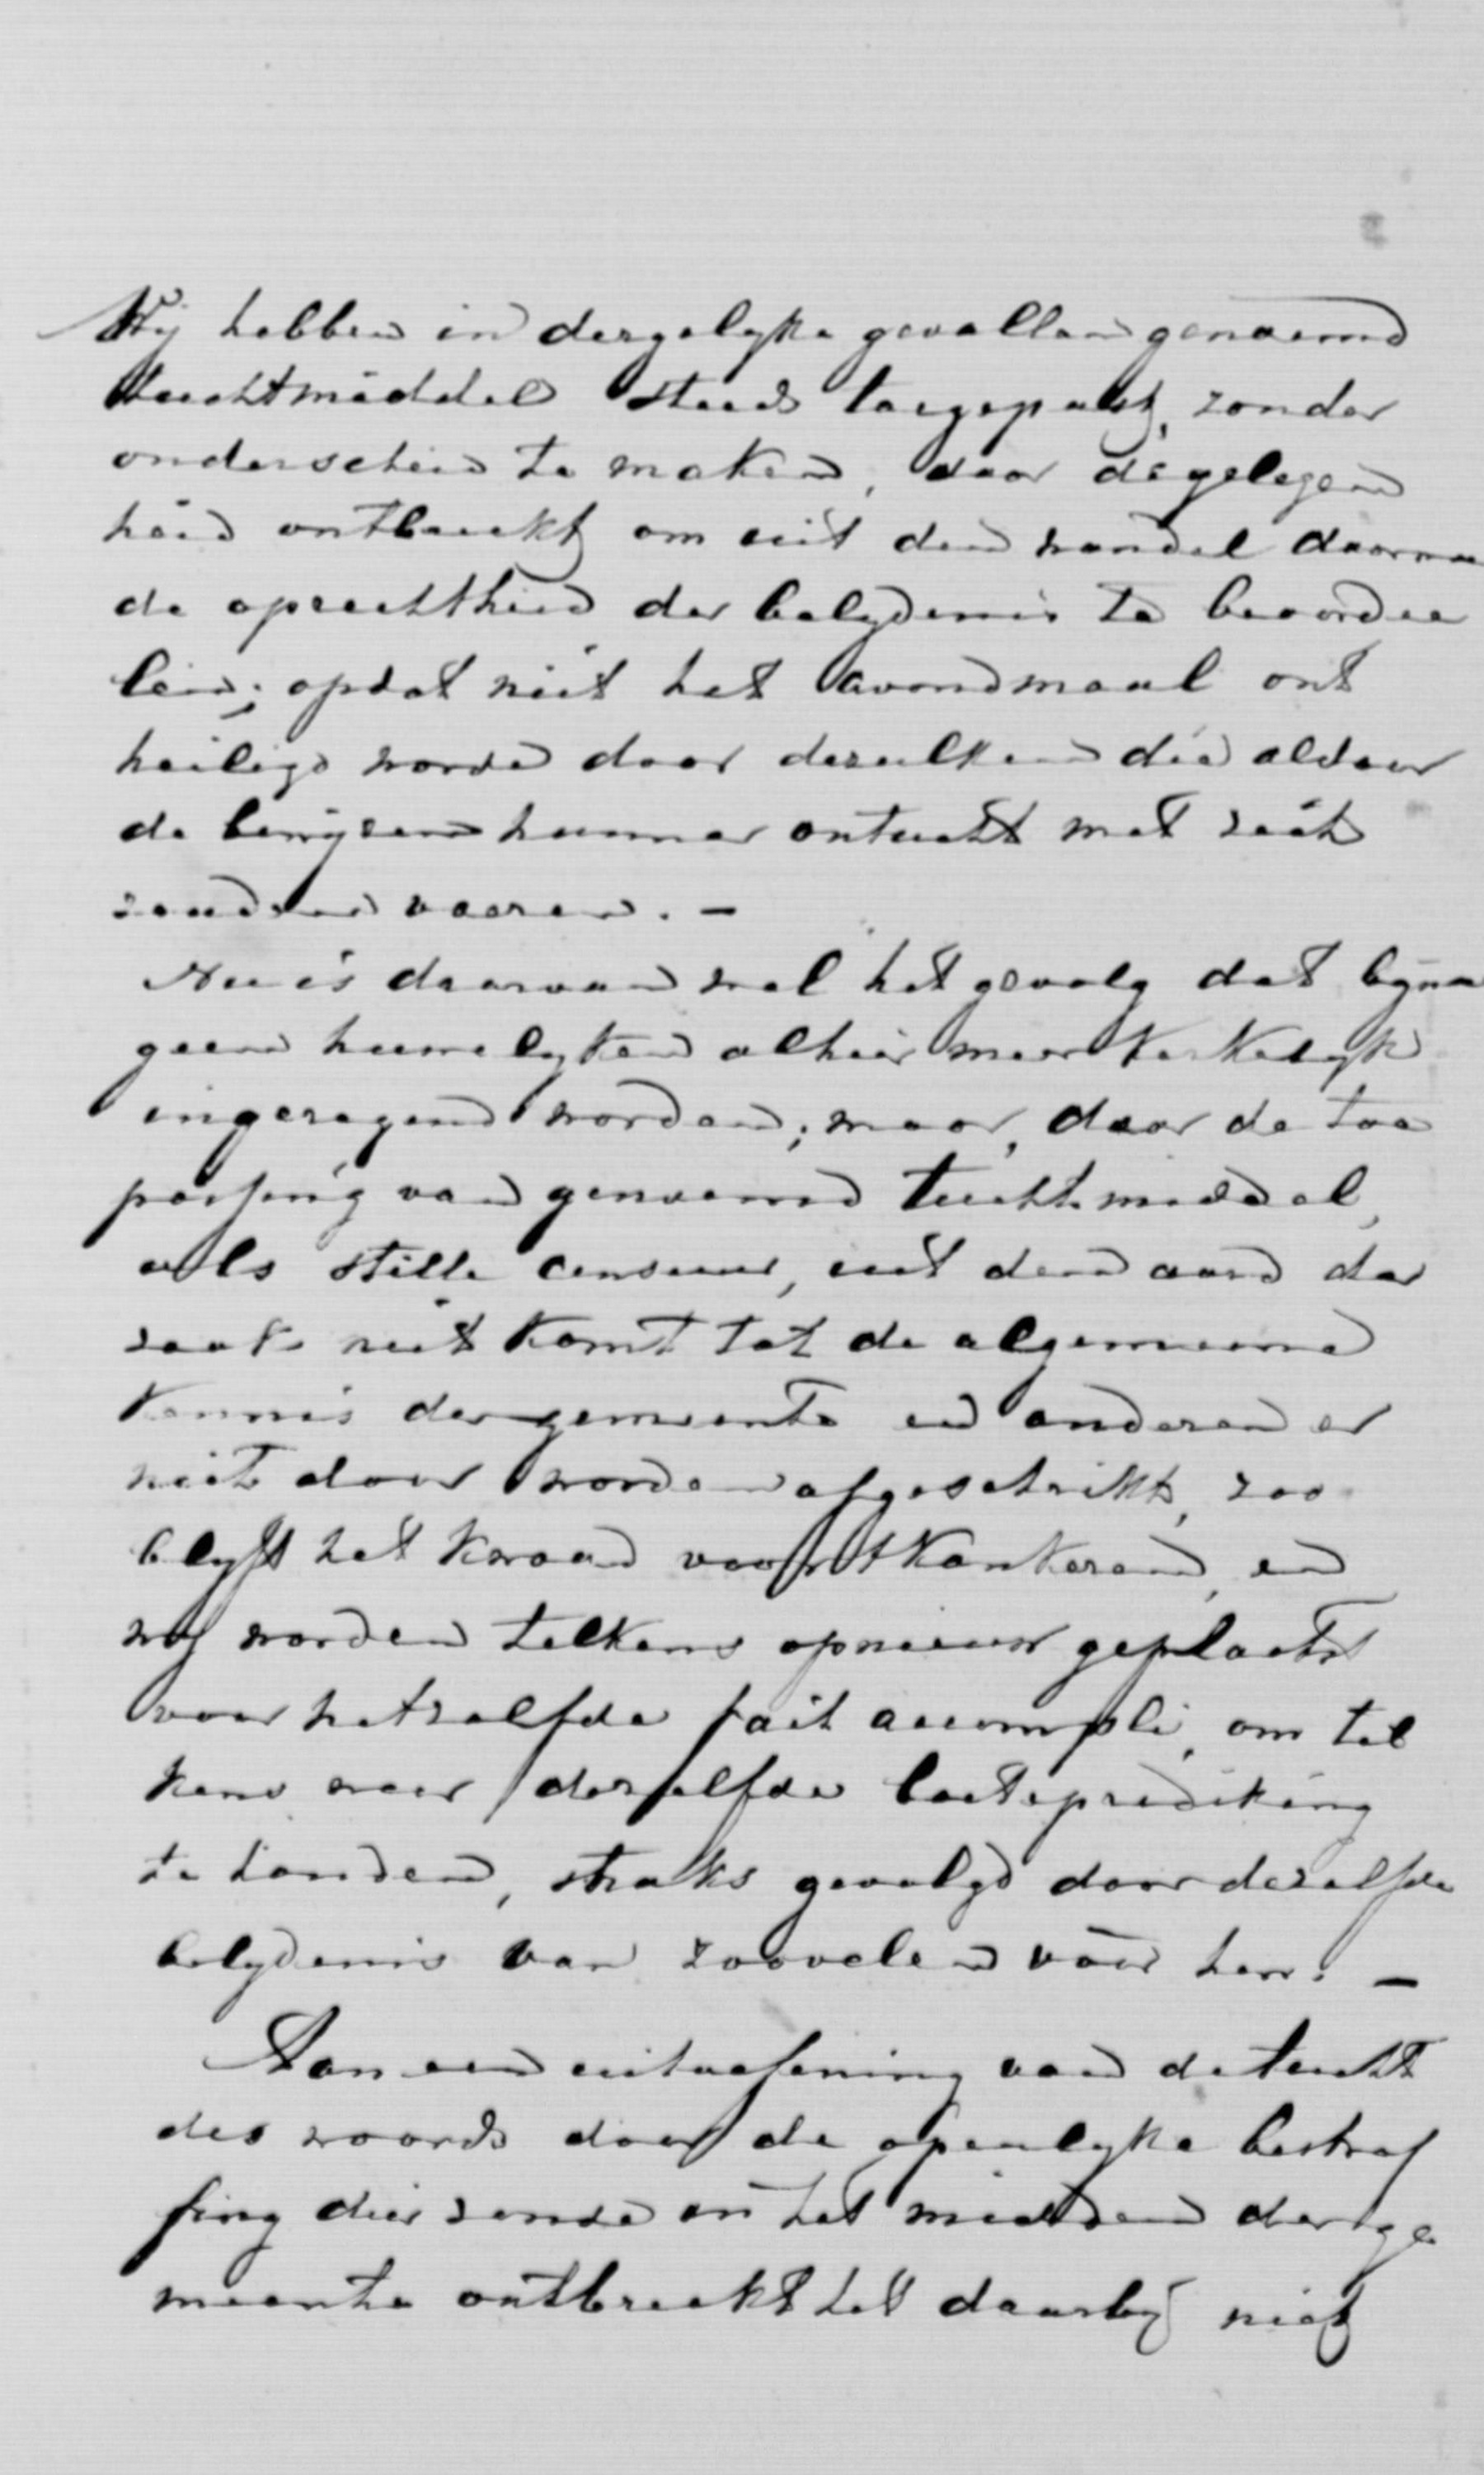 Wij hebben in dergelyke gevallen genoemd
tuchtmiddel steeds toegepast, zonder
onderscheid te maken, daar de gelegen
heid ontbreekt om uit den wandel daarna
de oprechtheid der belydenis te beoordee
len; opdat niet het Avondmaal ont
heiligd worde door dezulken die aldaar
de bewyzen hunner ontucht met zich
zouden voeren. —
Nu is daarvan wel het gevolg dat byna
geen huwelyken alhier meer kerkelyk
ingezegend worden; maar, daar de toe
passing van genoemd tuchtmiddel,
als stille censuur, uit den aard der
zaak niet komt tot de algemeene
kennis der gemeente en anderen er
niet door worden afgeschrikt, zoo
blyft het kwaad voortkankeren, en
wy worden telkens opnieuw geplaatst
voor hetzelfde fait accompli, om tel
kens weer dezelfde boeteprediking
te houden, straks gevolgd door dezelfde
belydenis van zoovelen vóór hen. —
Aan een uitoefening van de tucht
des woords door de openlyke bestraf
fing dier zonde in het midden der ge
meente ontbreekt het daarby niet